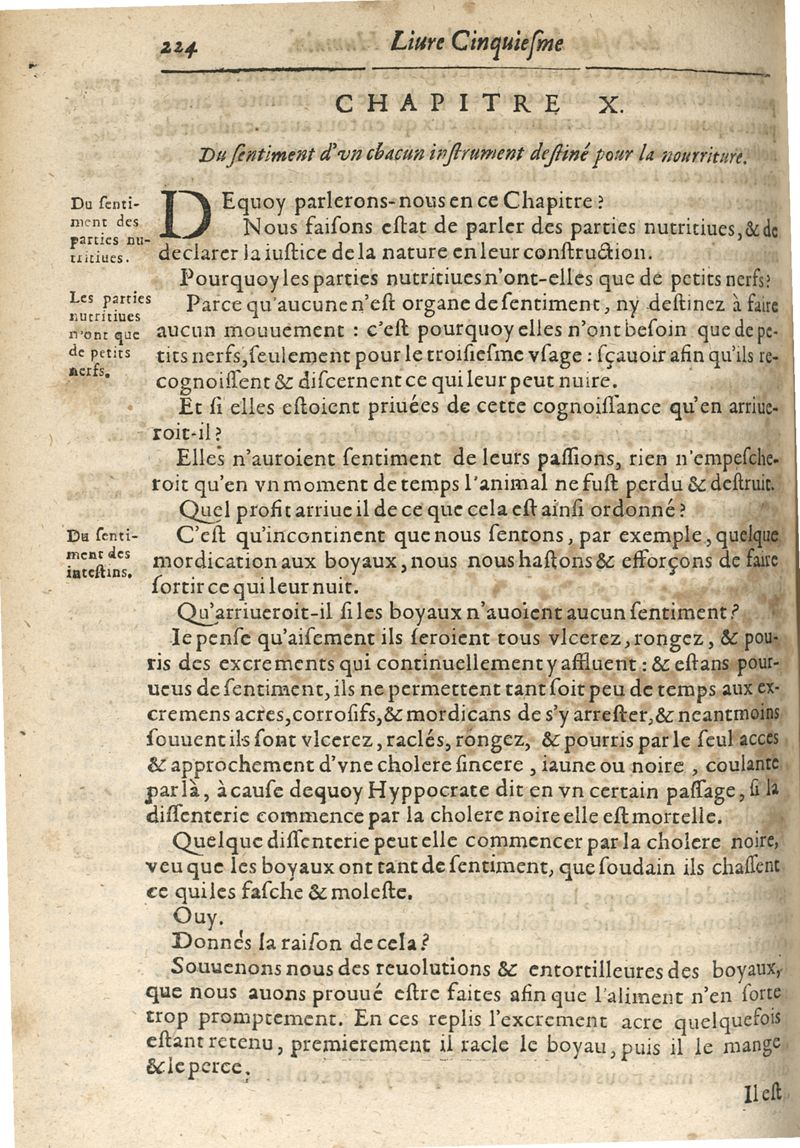 224 Liure Cinquiesme
CHAPITRE X.
Du sentiment d'vn chacun instrument destiné pour la nourriture.
Du senti-
ment des
parties nu-
tritiues.
DEquoy parlerons-nous en ce Chapitre?
Nous faisons estat de parler des parties nutritiues, & de
declarer la iustice de la nature en leur construction.
Pourquoy les parties nutritiues n'ont-elles que de petits nerfs?
Les parties
nutritiues
n'ont que
de petits
nerfs.
Parce qu'aucune n'est organe de sentiment, ny destinez à faire
aucun mouuement : c'est pourquoy elles n'ont besoin que de pe-
tits nerfs, seulement pour le troisiesme vsage : sçauoir afin qu'ils re-
cognoissent & discernent ce qui leur peut nuire.
Et si elles estoient priuées de cette cognoissance qu'en arriue-
roit-il?
Elles n'auroient sentiment de leurs passions, rien n'empesche-
roit qu'en vn moment de temps l'animal ne fust perdu & destruit.
Quel profit arriue il de ce que cela est ainsi ordonné?
Du senti-
ment des
intestins.
C'est qu'incontinent que nous sentons, par exemple, quelque
mordication aux boyaux, nous nous hastons & efforçons de faire
sortir ce qui leur nuit.
Qu'arriueroit-il si les boyaux n'auoient aucun sentiment?
Ie pense qu'aisement ils seroient tous vlcerez, rongez, & pou-
ris des excrements qui continuellement y affluent : & estans pour-
ueus de sentiment, ils ne permettent tant soit peu de temps aux ex-
cremens acres, corrosifs, & mordicans de s'y arrester, & neantmoins
souuent ils sont vlcerez, raclés, rongez, & pourris par le seul acces
& approchement d'vne cholere sincere, iaune ou noire, coulante
par là, à cause dequoy Hyppocrate dit en vn certain passage, si la
dissenterie commence par la cholere noire elle est mortelle.
Quelque dissenterie peut elle commencer par la cholere noire,
veu que les boyaux ont tant de sentiment, que soudain ils chassent
ce qui les fasche & moleste.
Ouy.
Donnés la raison de cela?
Souuenons nous des reuolutions & entortilleures des boyaux,
que nous auons prouué estre faites afin que l'aliment n'en sorte
trop promptement. En ces replis l'excrement acre quelquefois
estant retenu, premierement il racle le boyau, puis il le mange
& le perce.
Il est